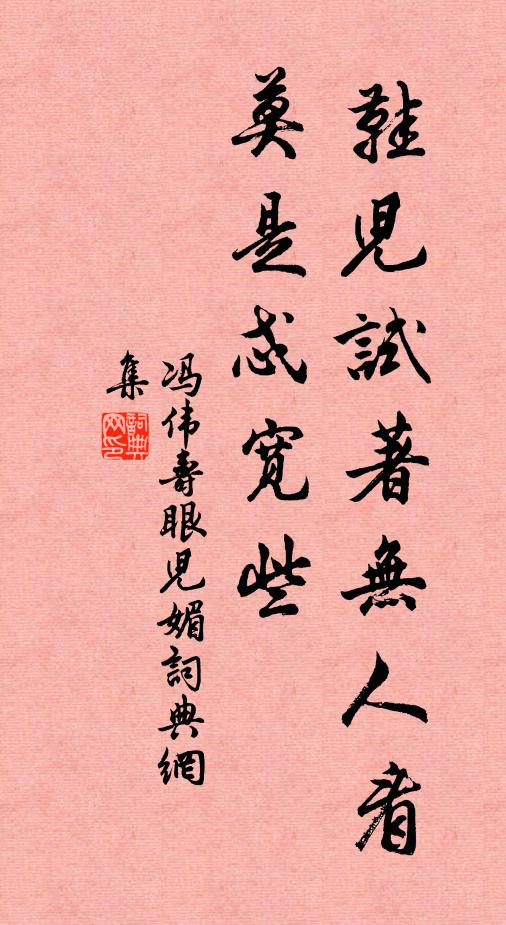 鞋兒試著無人看
莫是忒寬些
冯伟壽眼兒媚詞典網
集
詞典
网印